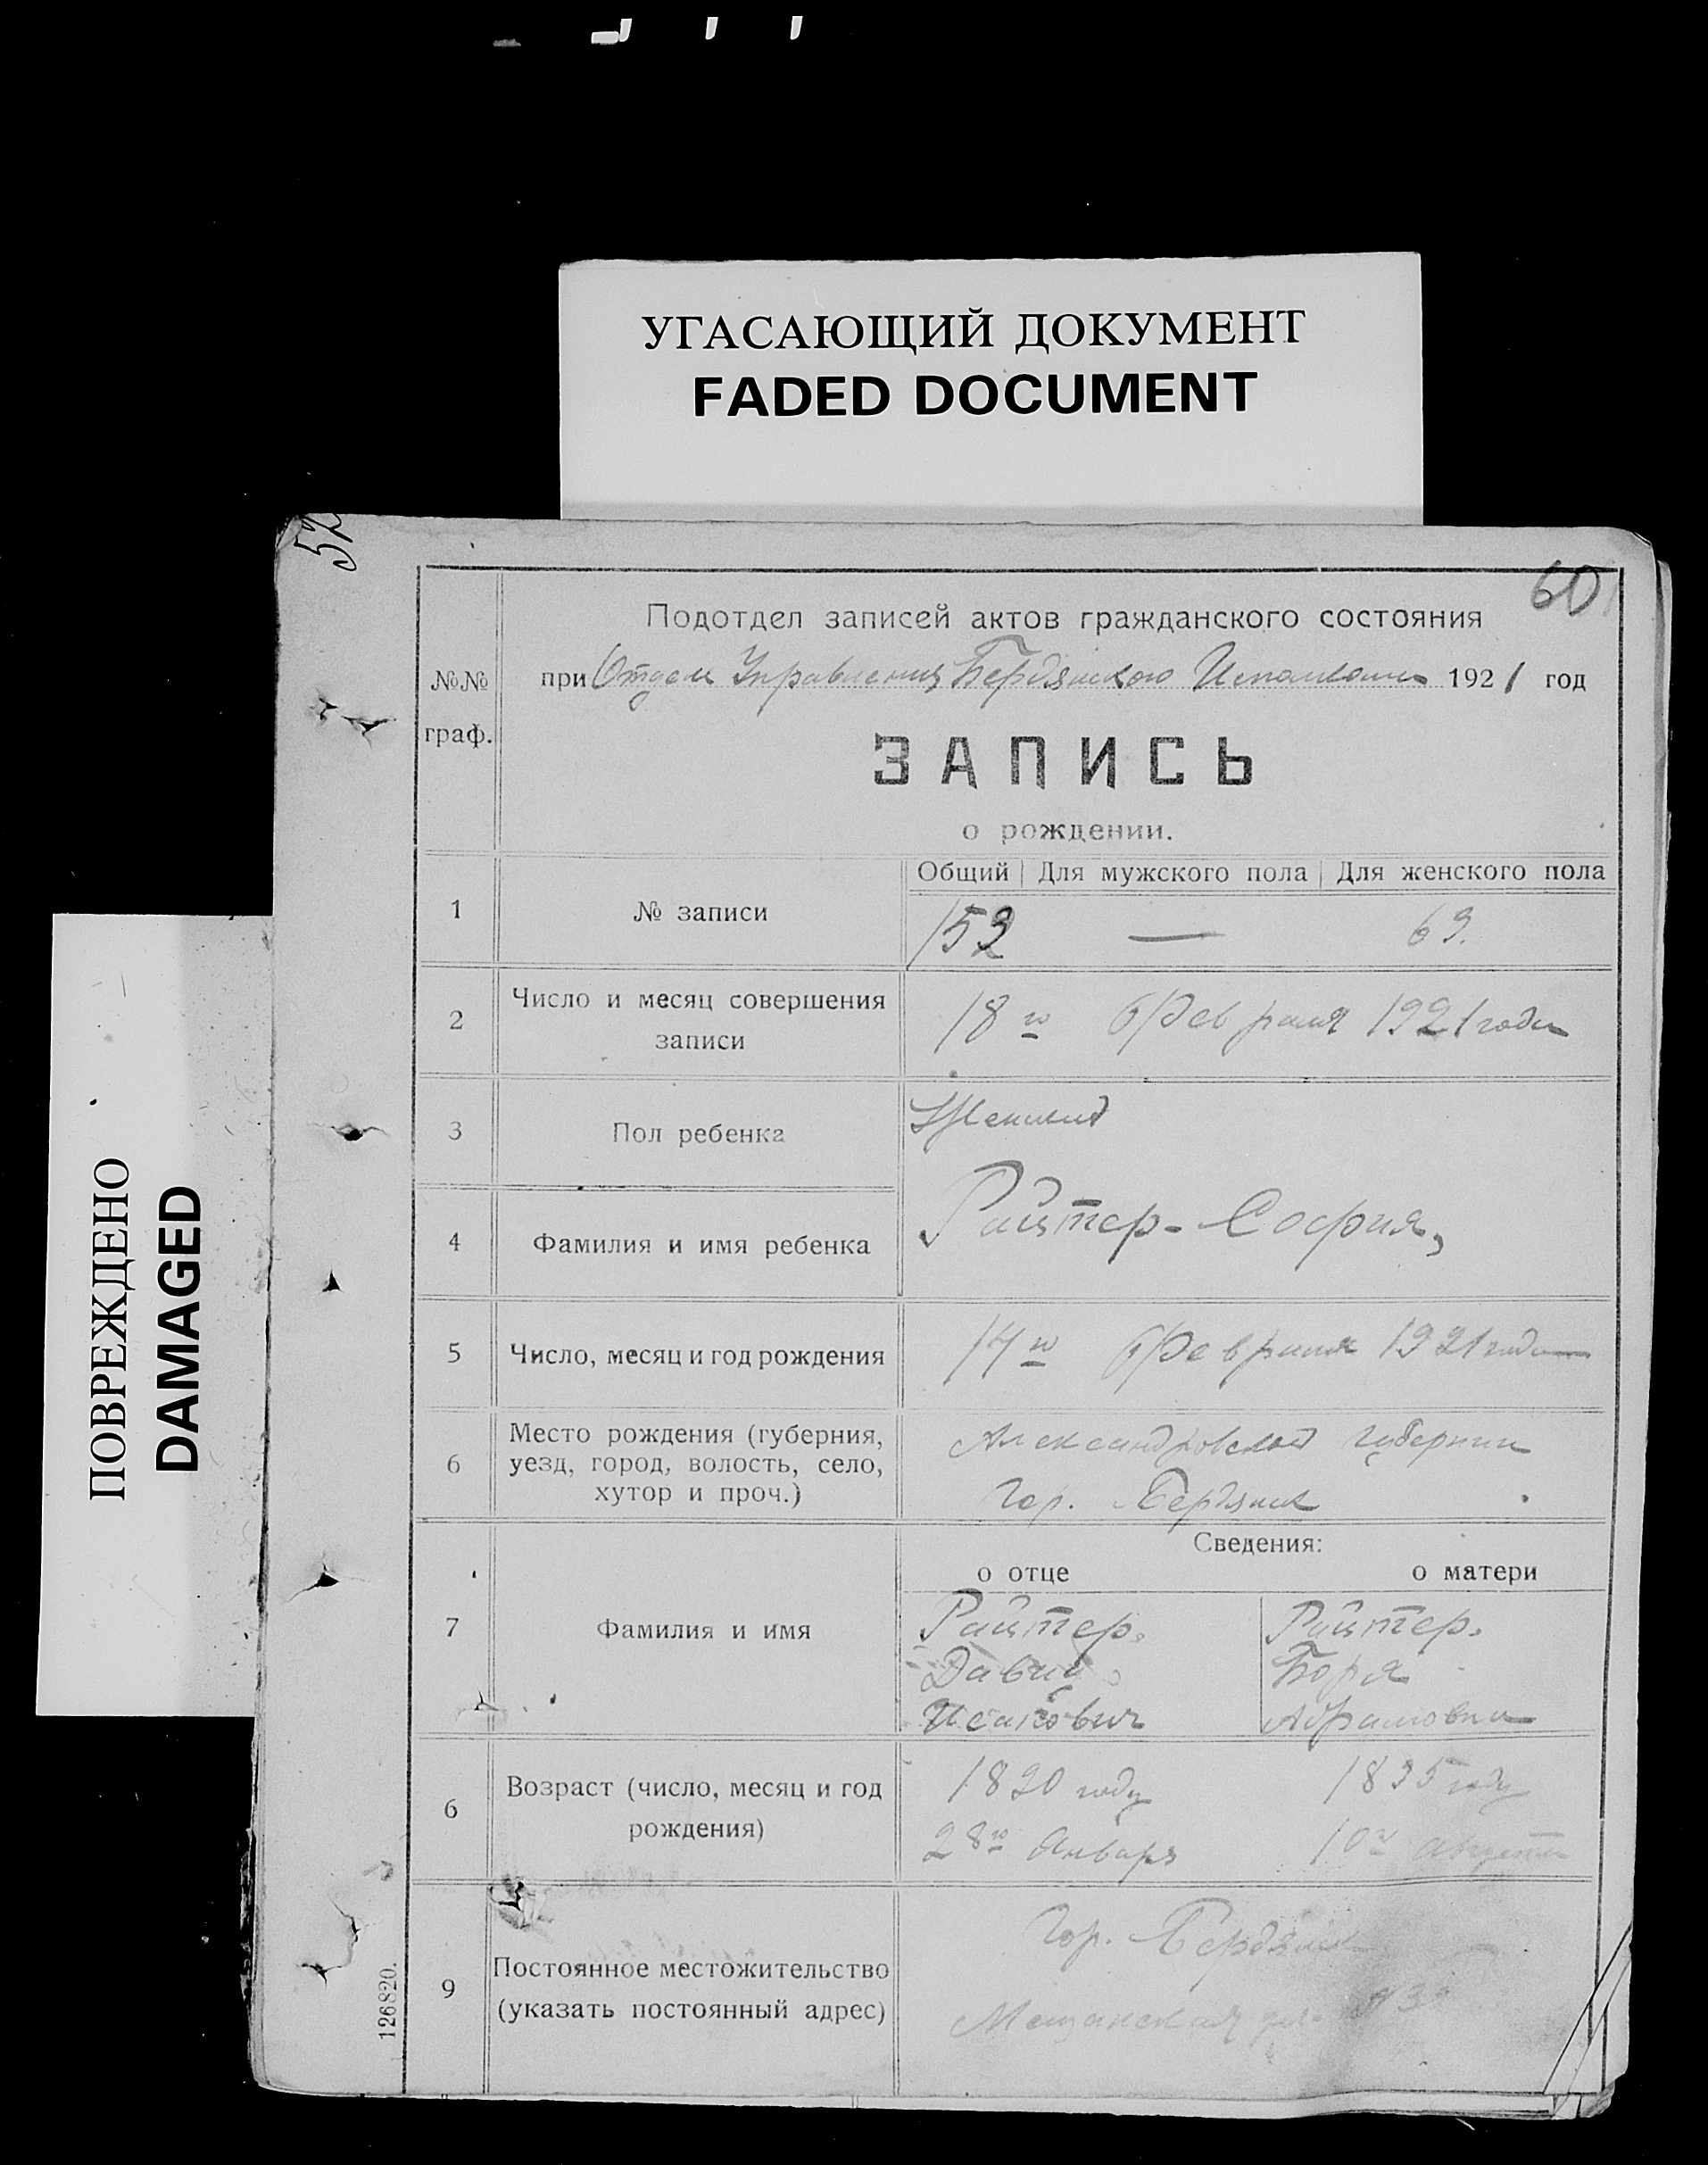 УГАСАЮЩИЙ ДОКУМЕНТ
FADED DOCUMENT
ПОВРЕЖДЕНО
DAMAGED
52
60
Подотдел записей актов гражданского состояния
№№ граф.
при Отделе Управления Бердянского Исполкома 1921 год
ЗАПИСЬ
о рождении.
Общий Для мужского пола Для женского пола
1 № записи 152 — 69.
2 Число и месяц совершения
записи
18го Февраля 1921 года
3 Пол ребенка Женский
4 Фамилия и имя ребенка Райтер - София,
5 Число, месяц и год рождения 14го Февраля 1921 года
6 Место рождения (губерния,
уезд, город, волость, село,
хутор и проч.)
Александровской губернии
гор. Бердянск
Сведения:
о отце о матери
7 Фамилия и имя
Райтер. Райтер.
Давид Бора
Исакович Абрамовна
6 Возраст (число, месяц и год
рождения)
1890 году 1895 году
28го Января 10го августа
9 Постоянное местожительство
(указать постоянный адрес)
Гор. Бердянск
Мещанская ул.
126820.